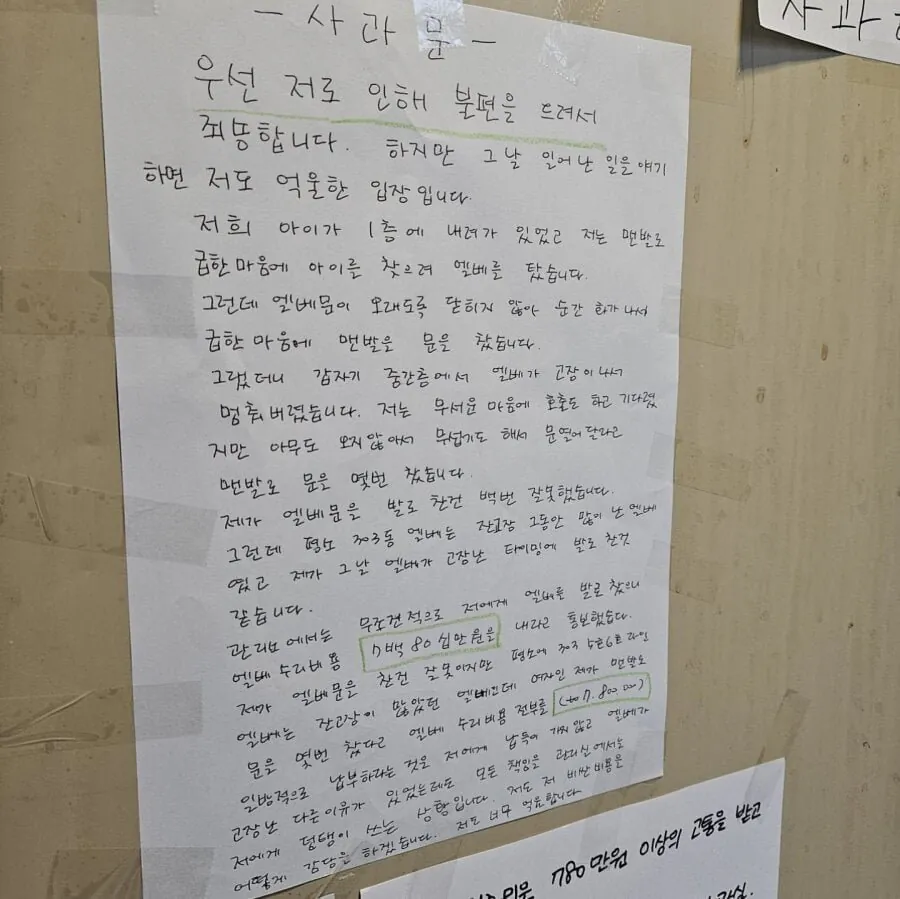 - 사 과 문 -
사 과
우선 저로 인해 불편을 드려서
죄송합니다. 하지만 그날 일어난 일을 얘기
하면 저도 억울한 입장입니다.
저희 아이가 1층에 내려가 있었고 저는 맨발로
급한마음에 아이를 찾으려 엘베를 탔습니다.
그런데 엘베문이 오래도록 닫히지 않아 순간 화가나서
급한마음에 맨발을 문을 찼습니다.
그랬더니 갑자기 중간층에서 엘베가 고장이나서
멈춰버렸습니다. 저는 무서운 마음에 호출도 하고 기다렸
지만 아무도 오지않아서 무섭기도 해서 문열어달라고
맨발로 문을 몇번 찼습니다.
제가 엘베문을 발로 찬건 백번 잘못했습니다.
그런데 평소 303동 엘베는 잔고장 그동안 많이 난 엘베
였고 제가 그날 엘베가 고장난 타이밍에 발로 찬것
같습니다.
관리소에서는 무조건적으로 저에게 엘베를 발로 찼으니
엘베 수리비용 7백80십만원을 내라고 통보했습니다.
제가 엘베문을 찬건 잘못이지만 평소에 303 5호6호라인
엘베는 잔고장이 많았던 엘베인데 여자인 제가 맨발로
문을 몇번 찼다고 엘베 수리비용 전부를 7.800.000)
일방적으로 납부하라는 것을 저에게 납득이 가지 않고 엘베가
고장난 다른이유가 있었는데도 모든 책임을 관리실에서는
저에게 덤탱이 쓰는 상황입니다. 저도 저 비싼비용을
어떻게 감당을 하겠습니다. 저도 너무 억울합니다
780만원 이상의 고통을 받고